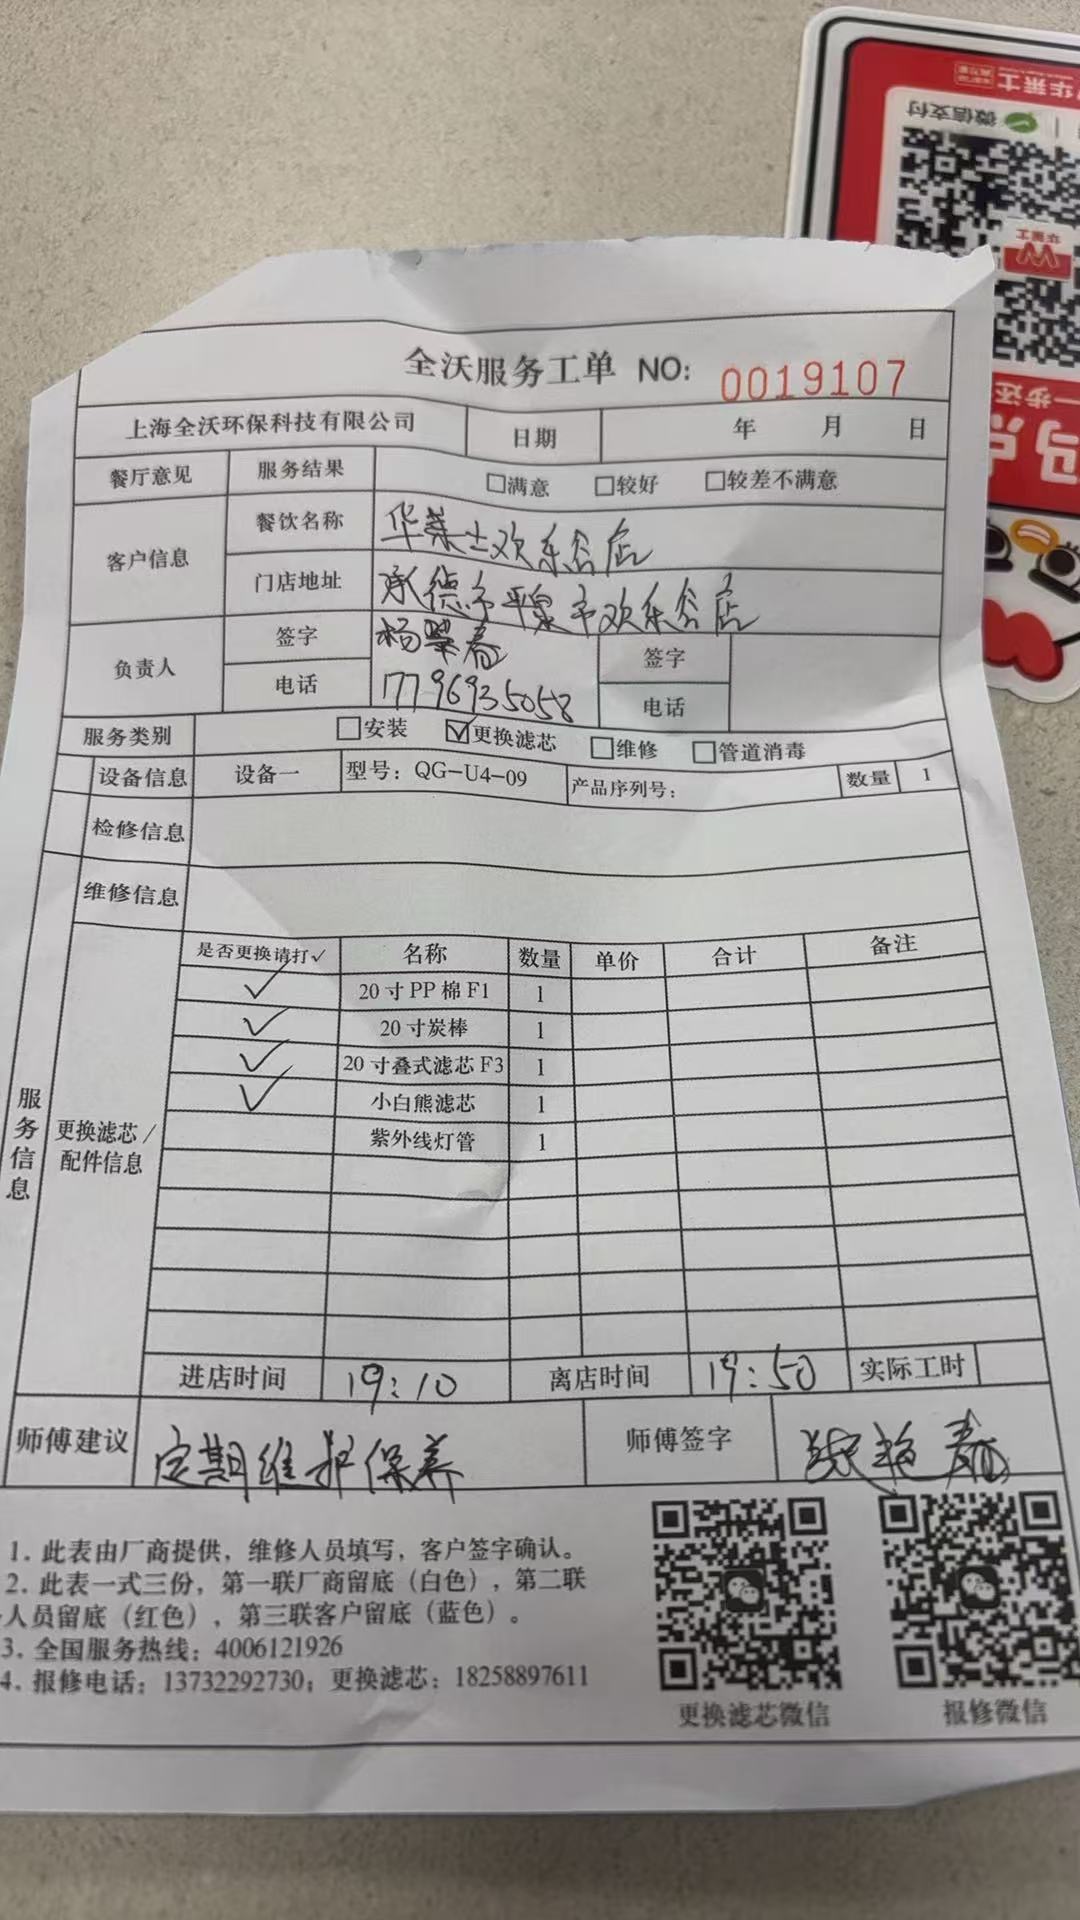 华莱士
微信支付
华莱士
一步还
码点
全沃服务工单 NO: 0019107
上海全沃环保科技有限公司 日期 年 月 日
餐厅意见 服务结果 □满意 □较好 □较差不满意
客户信息 餐饮名称 华莱士欢乐谷店
门店地址 承德市平泉市欢乐谷店
负责人 签字 杨翠春 签字
电话 17796935058 电话
服务类别 □安装 ☑更换滤芯 □维修 □管道消毒
设备信息 设备一 型号：QG-U4-09 产品序列号： 数量 1
检修信息
维修信息
服务信息
更换滤芯/配件信息
是否更换请打✓ 名称 数量 单价 合计 备注
✓ 20寸PP棉F1 1
✓ 20寸炭棒 1
✓ 20寸叠式滤芯F3 1
✓ 小白熊滤芯 1
紫外线灯管 1
进店时间 19:10 离店时间 19:50 实际工时
师傅建议 定期维护保养 师傅签字
1. 此表由厂商提供，维修人员填写，客户签字确认。
2. 此表一式三份，第一联厂商留底（白色），第二联
人员留底（红色），第三联客户留底（蓝色）。
3. 全国服务热线：4006121926
4. 报修电话：13732292730；更换滤芯：18258897611
更换滤芯微信
报修微信